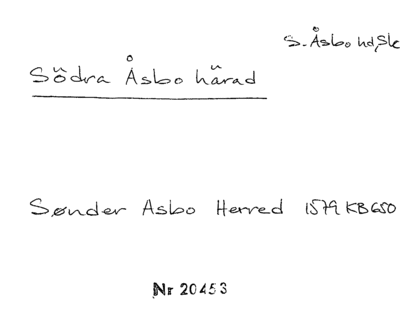 S. Åsbo hd, Sk
Södra Åsbo härad
Sønder Asbo Herred 1579 KB 650
Nr 20453